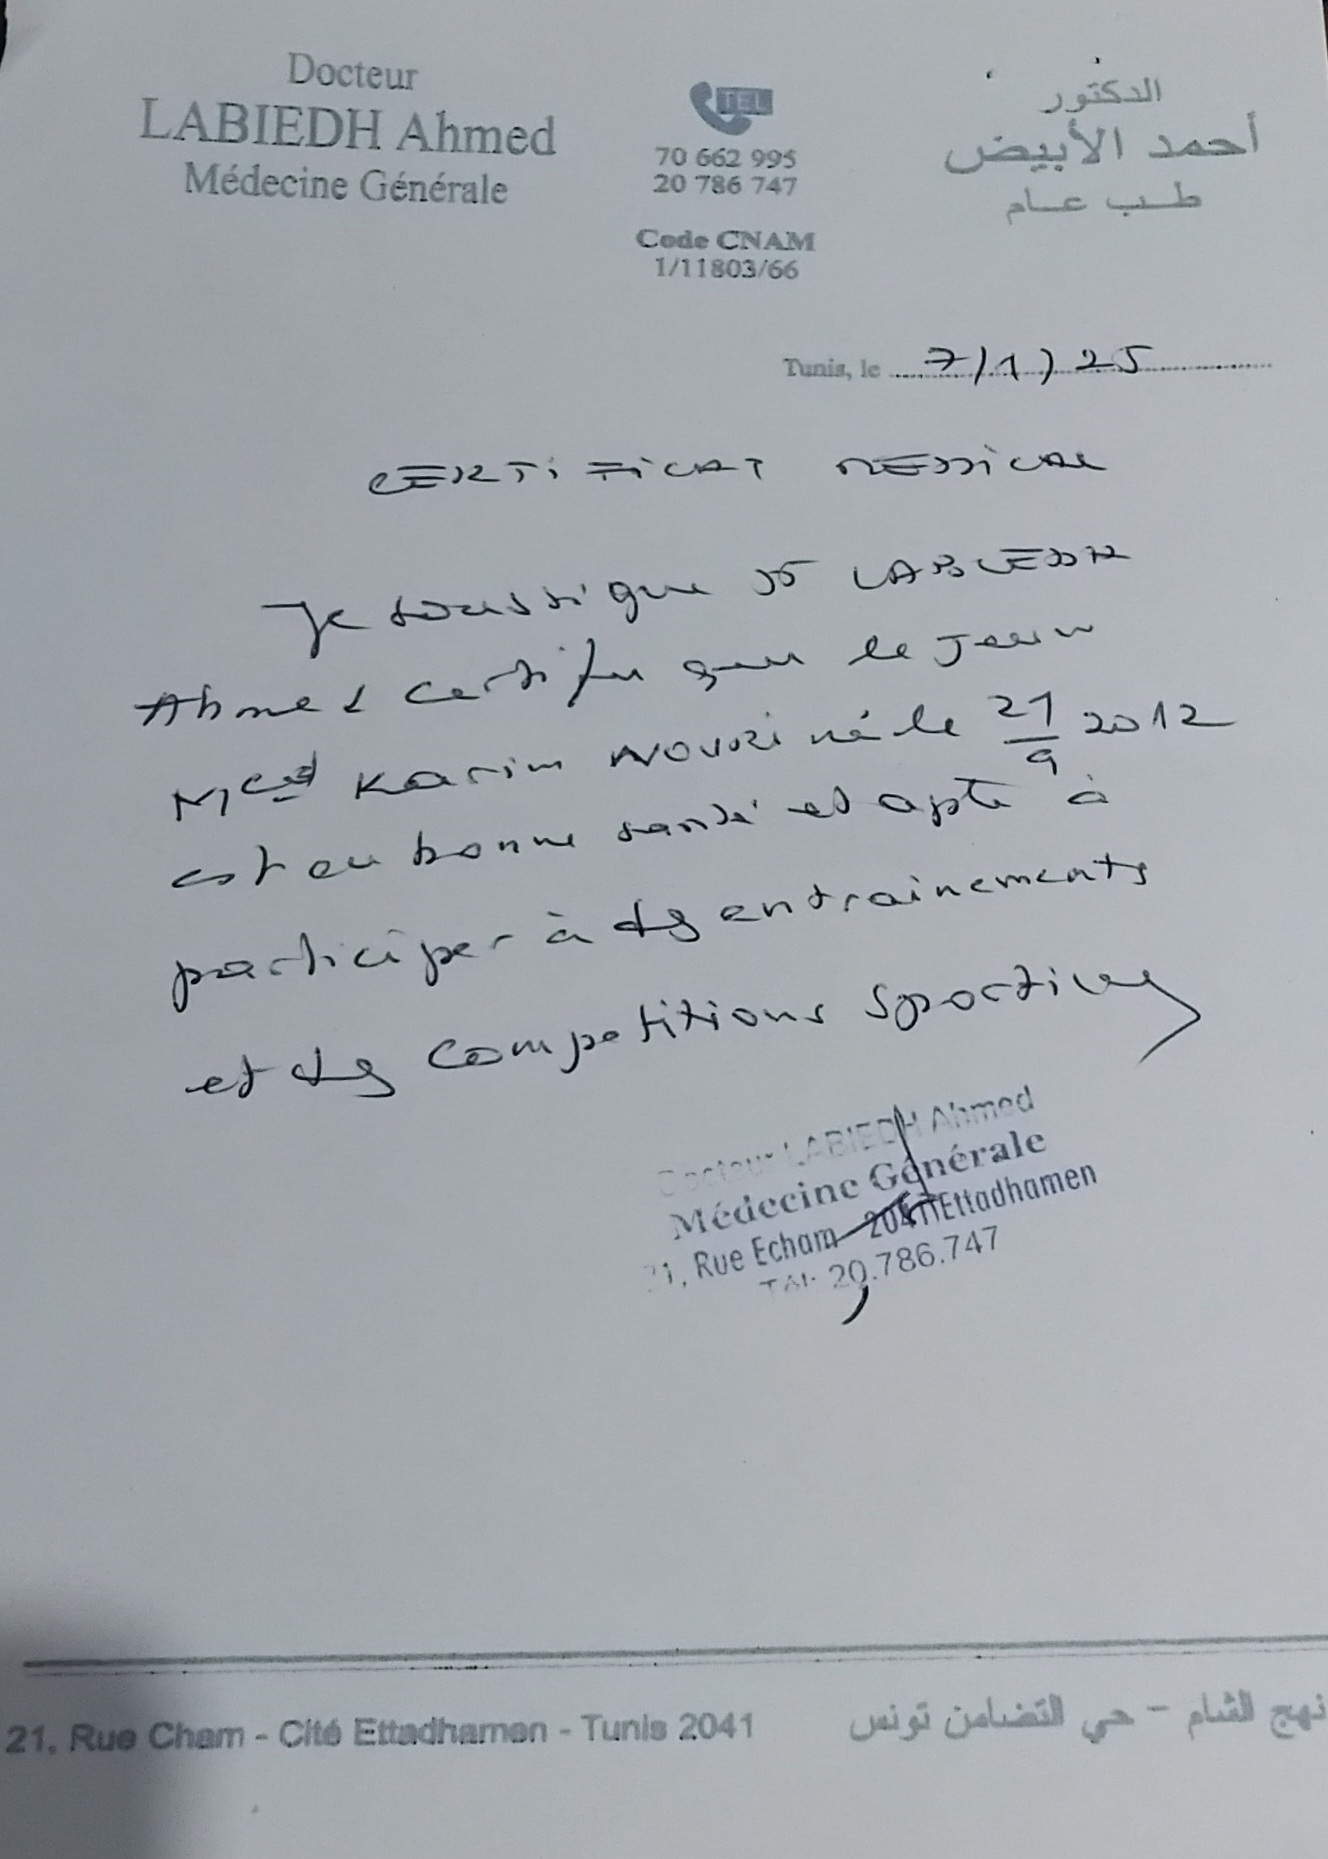 Docteur
LABIEDH Ahmed
Médecine Générale
TEL
70 662 995
20 786 747
Code CNAM
1/11803/66
الدكتور
أحمد الأبيض
طب عام
Tunis, le 7/1/25
CERTIFICAT MEDICAL
Je soussigné Dr LABIEDH
Ahmed certifie que le jeune
Med Karim NOUORI né le 21/9 2012
est en bonne santé et apte à
participer à des entrainements
et des competitions sportives
Docteur LABIEDH Ahmed
Médecine Générale
21, Rue Echam 2041 Ettadhamen
Tél: 20.786.747
21, Rue Cham - Cité Ettadhamen - Tunis 2041
نهج الشام - حي التضامن تونس